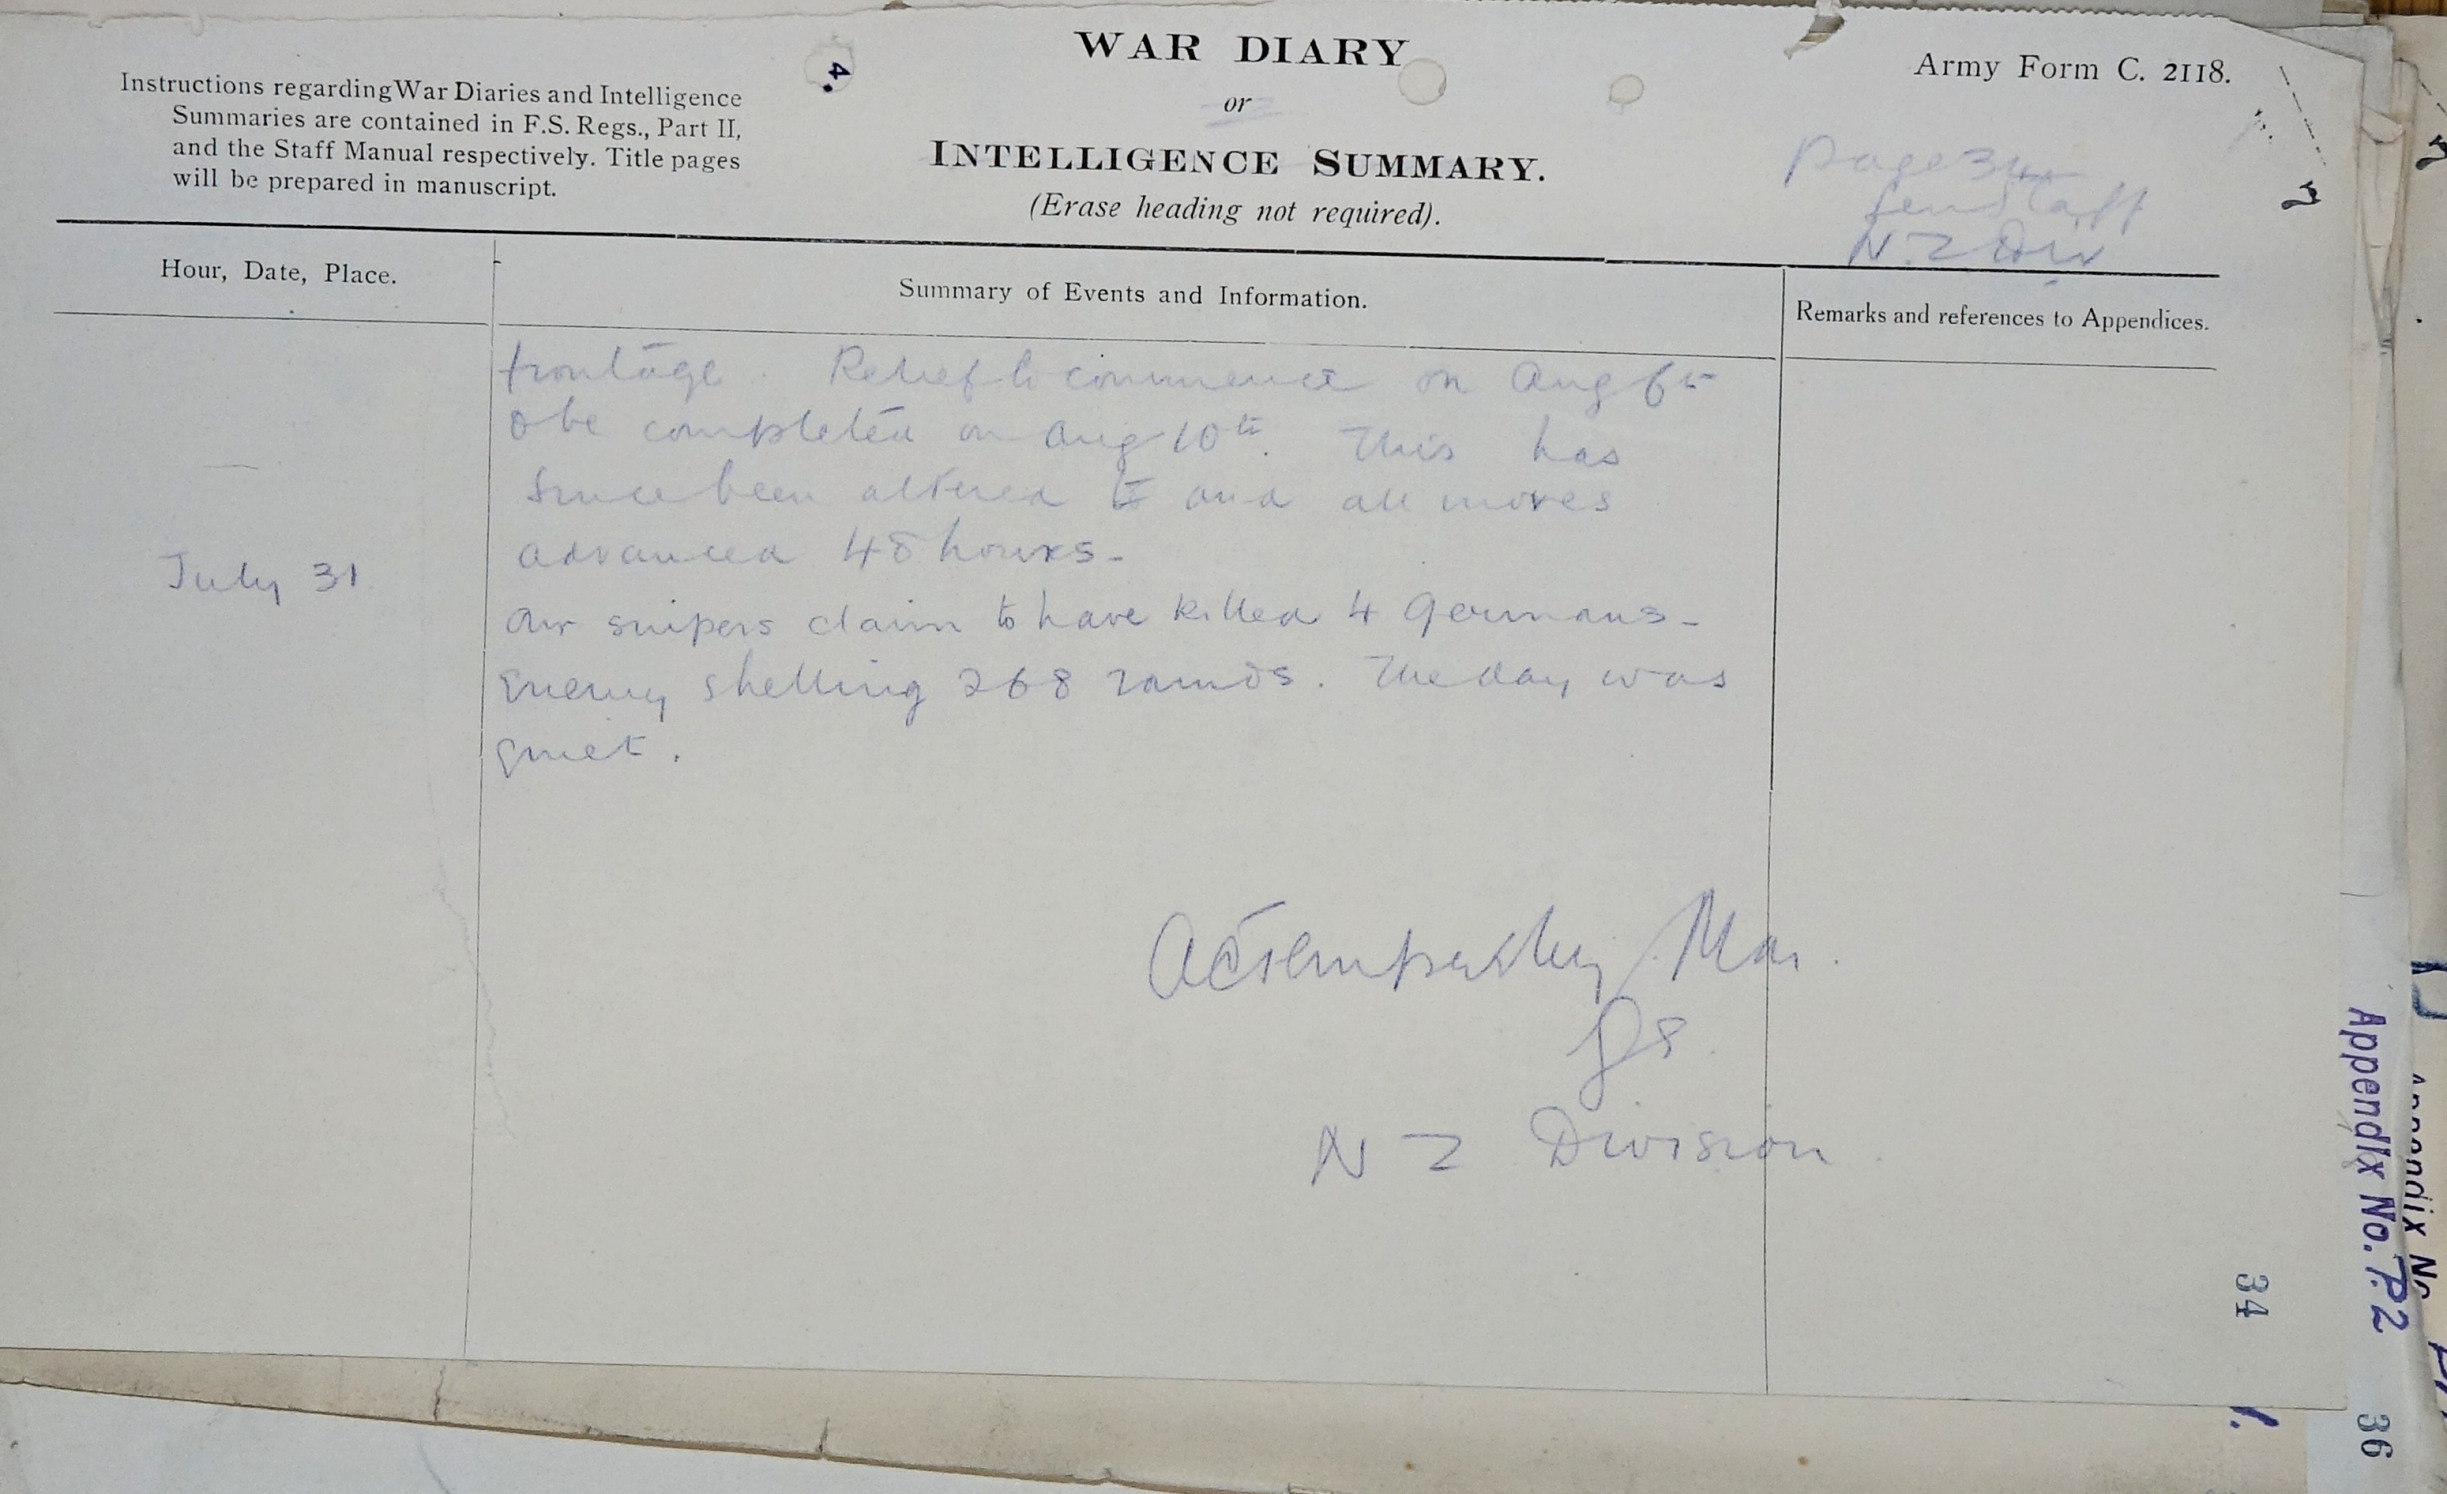 WAR DIARY
or
INTELLIGENCE SUMMARY.
(Erase heading not required).
Instructions regarding War Diaries and Intelligence
Summaries are contained in F.S. Regs., Part II,
and the Staff Manual respectively. Title pages
will be prepared in manuscript.
4.
Army Form C. 2118.
Page 34
Gen Staff
N.Z Div
Hour, Date, Place.
Summary of Events and Information.
Remarks and references to Appendices.
frontage. Relief to commence on Aug 6th
& be completed on Aug 10th. This has
since been altered to and all moves
advanced 48 hours-
July 31
Our snipers claim to have killed 4 Germans-
Enemy shelling 268 rounds. The day was
quiet.
Maj.
GS.
N Z Division
34
Appendix No. P.2
36
Appendix No